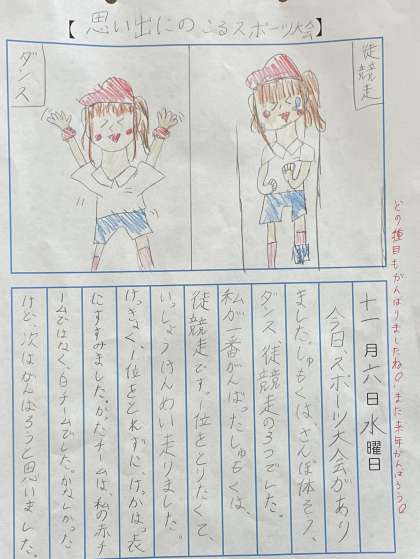 【思い出にのこるスポーツ大会】
徒競走
ダンス
どの種目もがんばりましたね。また来年がんばろう。
十一月六日水曜日
今日、スポーツ大会があり
ました。しゅもくは、さんぽ体そう、
ダンス、徒競走の3つでした。
私が一番がんばったしゅもくは、
徒競走です。一位をとりたくて、
いっしょうけんめい走りました。
けっきょく、1位をとれずに、けっかはっ表
にすすみました。かったチームは、私の赤チ
ームではなく、白チームでした。かなしかった
けど、次はがんばろうと思いました。